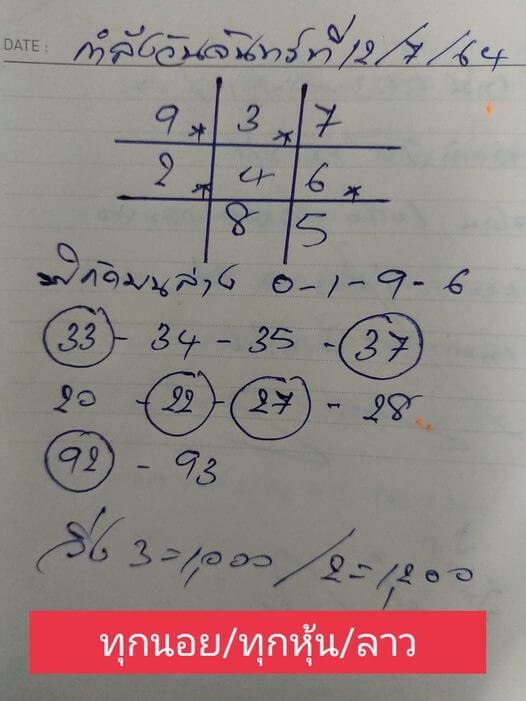 DATE :
กำลังวันจันทร์ที่ 12/7/64
9* 3* 7
2* 4 6*
8 5
บนล่าง 0-1-9-6
33 - 34 - 35 - 37
20 - 22 - 27 - 28
92 - 93
วิ่ง 3=1,000 / 2=1,200
ทุกนอย/ทุกหุ้น/ลาว